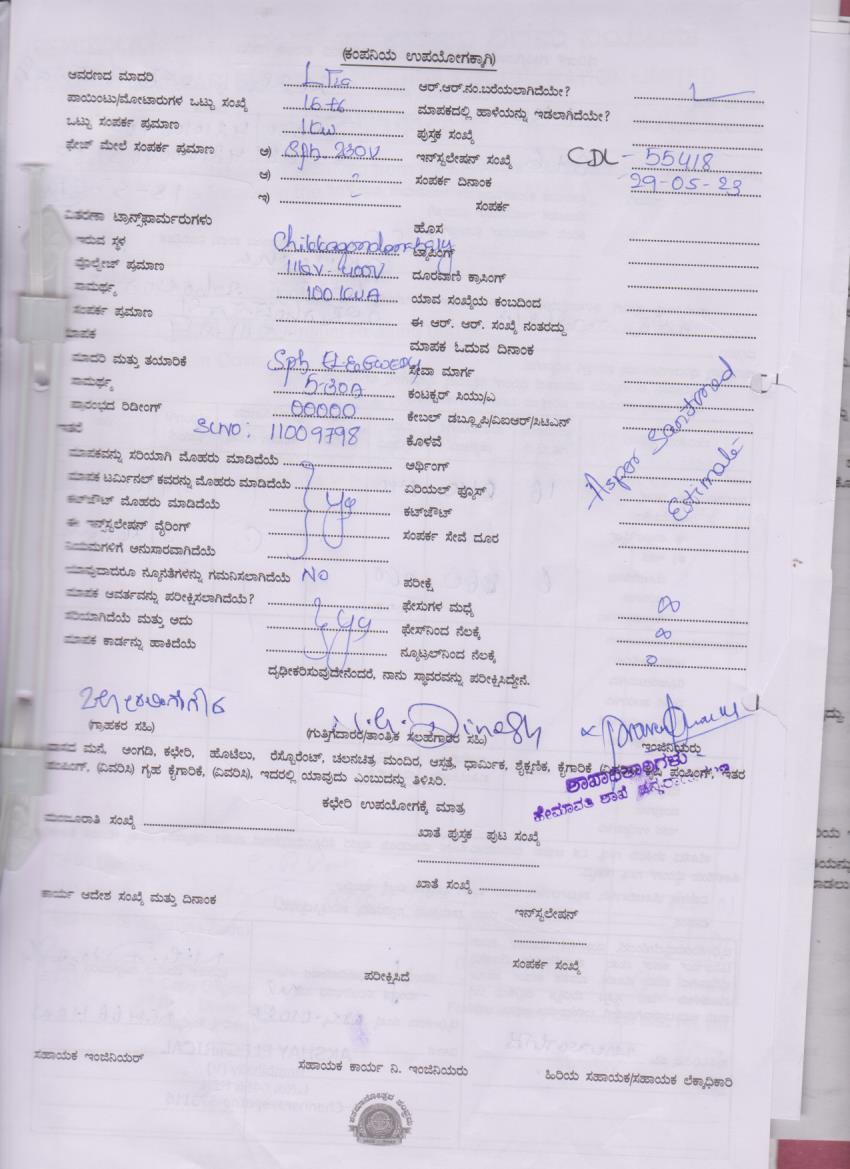 (ಕಂಪನಿಯ ಉಪಯೋಗಕ್ಕಾಗಿ)
ಆವರಣದ ಮಾದರಿ ಆರ್.ಆರ್.ನಂ.ಬರೆಯಲಾಗಿದೆಯೇ?
ಪಾಯಿಂಟು/ಮೋಟಾರುಗಳ ಒಟ್ಟು ಸಂಖ್ಯೆ ಮಾಪಕದಲ್ಲಿ ಹಾಳೆಯನ್ನು ಇಡಲಾಗಿದೆಯೇ?
ಒಟ್ಟು ಸಂಪರ್ಕ ಪ್ರಮಾಣ 1KW ಪುಸ್ತಕ ಸಂಖ್ಯೆ
ಫೇಜ್ ಮೇಲೆ ಸಂಪರ್ಕ ಪ್ರಮಾಣ ಅ) Sph 230V ಇನ್‌ಸ್ಟಲೇಷನ್ ಸಂಖ್ಯೆ CDL - 55418
ಆ) ಸಂಪರ್ಕ ದಿನಾಂಕ 29-05-23
ಇ) ಸಂಪರ್ಕ
ವಿತರಣಾ ಟ್ರಾನ್ಸ್‌ಫಾರ್ಮರುಗಳು ಹೊಸ
ಇರುವ ಸ್ಥಳ ಟ್ಯಾಪಿಂಗ್
ವೊಲ್ಟೇಜ್ ಪ್ರಮಾಣ 11kV-400V ದೂರವಾಣಿ ಕ್ರಾಸಿಂಗ್
ಸಾಮರ್ಥ್ಯ 100 KVA ಯಾವ ಸಂಖ್ಯೆಯ ಕಂಬದಿಂದ
ಸಂಪರ್ಕ ಪ್ರಮಾಣ ಈ ಆರ್. ಆರ್. ಸಂಖ್ಯೆ ನಂತರದ್ದು
ಮಾಪಕ ಮಾಪಕ ಓದುವ ದಿನಾಂಕ
ಮಾದರಿ ಮತ್ತು ತಯಾರಿಕೆ Sph ಸೇವಾ ಮಾರ್ಗ
ಸಾಮರ್ಥ್ಯ 5-30A ಕಂಟಕ್ಟರ್ ಸಿಯು/ಎ
ಪ್ರಾರಂಭದ ರಿಡೀಂಗ್ 00000 ಕೇಬಲ್ ಡಬ್ಲ್ಯೂಪಿ/ವಿಐಆರ್/ಸಿಟಿಎಸ್
ಇತರೆ SL NO: 11009798 ಕೊಳವೆ
ಮಾಪಕವನ್ನು ಸರಿಯಾಗಿ ಮೊಹರು ಮಾಡಿದೆಯೆ ಆರ್ಥಿಂಗ್
ಮಾಪಕ ಟರ್ಮಿನಲ್ ಕವರನ್ನು ಮೊಹರು ಮಾಡಿದೆಯೆ ಏರಿಯಲ್ ಫ್ಯೂಸ್
ಕಟ್‌ಔಟ್ ಮೊಹರು ಮಾಡಿದೆಯೆ ಕಟ್‌ಔಟ್
ಈ ಇನ್‌ಸ್ಟಲೇಷನ್ ವೈರಿಂಗ್ ಸಂಪರ್ಕ ಸೇವೆ ದೂರ
Estimate
ನಿಯಮಗಳಿಗೆ ಅನುಸಾರವಾಗಿದೆಯೆ
ಯಾವುದಾದರೂ ನ್ಯೂನತೆಗಳನ್ನು ಗಮನಿಸಲಾಗಿದೆಯೆ NO ಪರೀಕ್ಷೆ
ಮಾಪಕ ಆವರ್ತವನ್ನು ಪರೀಕ್ಷಿಸಲಾಗಿದೆಯೆ? ಫೇಸುಗಳ ಮಧ್ಯೆ ∞
ಸರಿಯಾಗಿದೆಯೆ ಮತ್ತು ಅದು ಫೇಸ್‌ನಿಂದ ನೆಲಕ್ಕೆ ∞
ಮಾಪಕ ಕಾರ್ಡನ್ನು ಹಾಕಿದೆಯೆ ನ್ಯೂಟ್ರಲ್‌ನಿಂದ ನೆಲಕ್ಕೆ 0
ದೃಢೀಕರಿಸುವುದೇನೆಂದರೆ, ನಾನು ಸ್ಥಾವರವನ್ನು ಪರೀಕ್ಷಿಸಿದ್ದೇನೆ.
N.G. Dinesh
(ಗ್ರಾಹಕರ ಸಹಿ) (ಗುತ್ತಿಗೆದಾರರ/ತಾಂತ್ರಿಕ ಸಲಹೆಗಾರರ ಸಹಿ) ಇಂಜಿನಿಯರು
ವಾಸದ ಮನೆ, ಅಂಗಡಿ, ಕಛೇರಿ, ಹೊಟೆಲು, ರೆಸ್ಟೊರೆಂಟ್, ಚಲನಚಿತ್ರ ಮಂದಿರ, ಆಸ್ಪತ್ರೆ, ಧಾರ್ಮಿಕ, ಶೈಕ್ಷಣಿಕ, ಕೈಗಾರಿಕೆ ಪಂಪಿಂಗ್, ಇತರ
ಪಂಪಿಂಗ್, (ವಿವರಿಸಿ) ಗೃಹ ಕೈಗಾರಿಕೆ, (ವಿವರಿಸಿ), ಇದರಲ್ಲಿ ಯಾವುದು ಎಂಬುದನ್ನು ತಿಳಿಸಿರಿ.
ಶಾಖಾಧಿಕಾರಿಗಳು
ಹೇಮಾವತಿ ಶಾಖೆ
ಕಛೇರಿ ಉಪಯೋಗಕ್ಕೆ ಮಾತ್ರ
ಮಂಜೂರಾತಿ ಸಂಖ್ಯೆ ಖಾತೆ ಪುಸ್ತಕ ಪುಟ ಸಂಖ್ಯೆ
ಖಾತೆ ಸಂಖ್ಯೆ
ಕಾರ್ಯ ಆದೇಶ ಸಂಖ್ಯೆ ಮತ್ತು ದಿನಾಂಕ ಇನ್‌ಸ್ಟಲೇಷನ್
ಸಂಪರ್ಕ ಸಂಖ್ಯೆ
ಪರೀಕ್ಷಿಸಿದೆ
ಸಹಾಯಕ ಇಂಜಿನಿಯರ್ ಸಹಾಯಕ ಕಾರ್ಯ ನಿ. ಇಂಜಿನಿಯರು ಹಿರಿಯ ಸಹಾಯಕ/ಸಹಾಯಕ ಲೆಕ್ಕಾಧಿಕಾರಿ